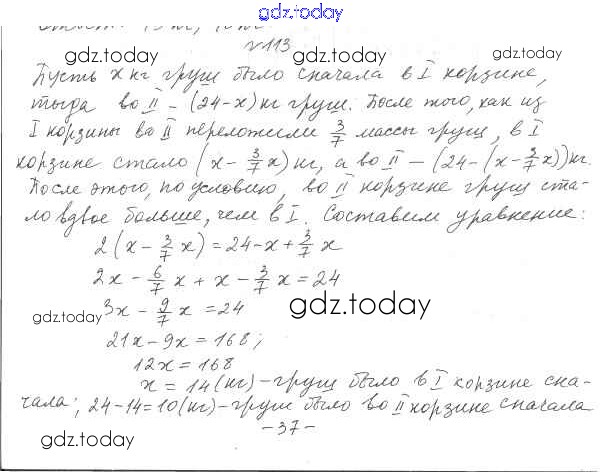 gdz.today
Ответ: 13 кг, 10 кг
№ 113
gdz.today gdz.today
Пусть x кг груш было сначала в I корзине,
тогда во II – (24-x) кг груш. После того, как из
I корзины во II переложили 3/7 массы груш, в I
корзине стало (x - 3/7 x) кг, а во II – (24-(x-3/7x)) кг.
После этого, по условию, во II корзине груш ста-
ло вдвое больше, чем в I. Составим уравнение:
2(x - 3/7 x) = 24-x + 3/7 x
2x - 6/7 x + x - 3/7 x = 24
3x - 9/7 x = 24
gdz.today gdz.today
21x - 9x = 168;
12x = 168
x = 14 (кг) – груш было в I корзине сна-
чала; 24-14=10(кг) – груш было во II корзине сначала
gdz.today gdz.today
-37-